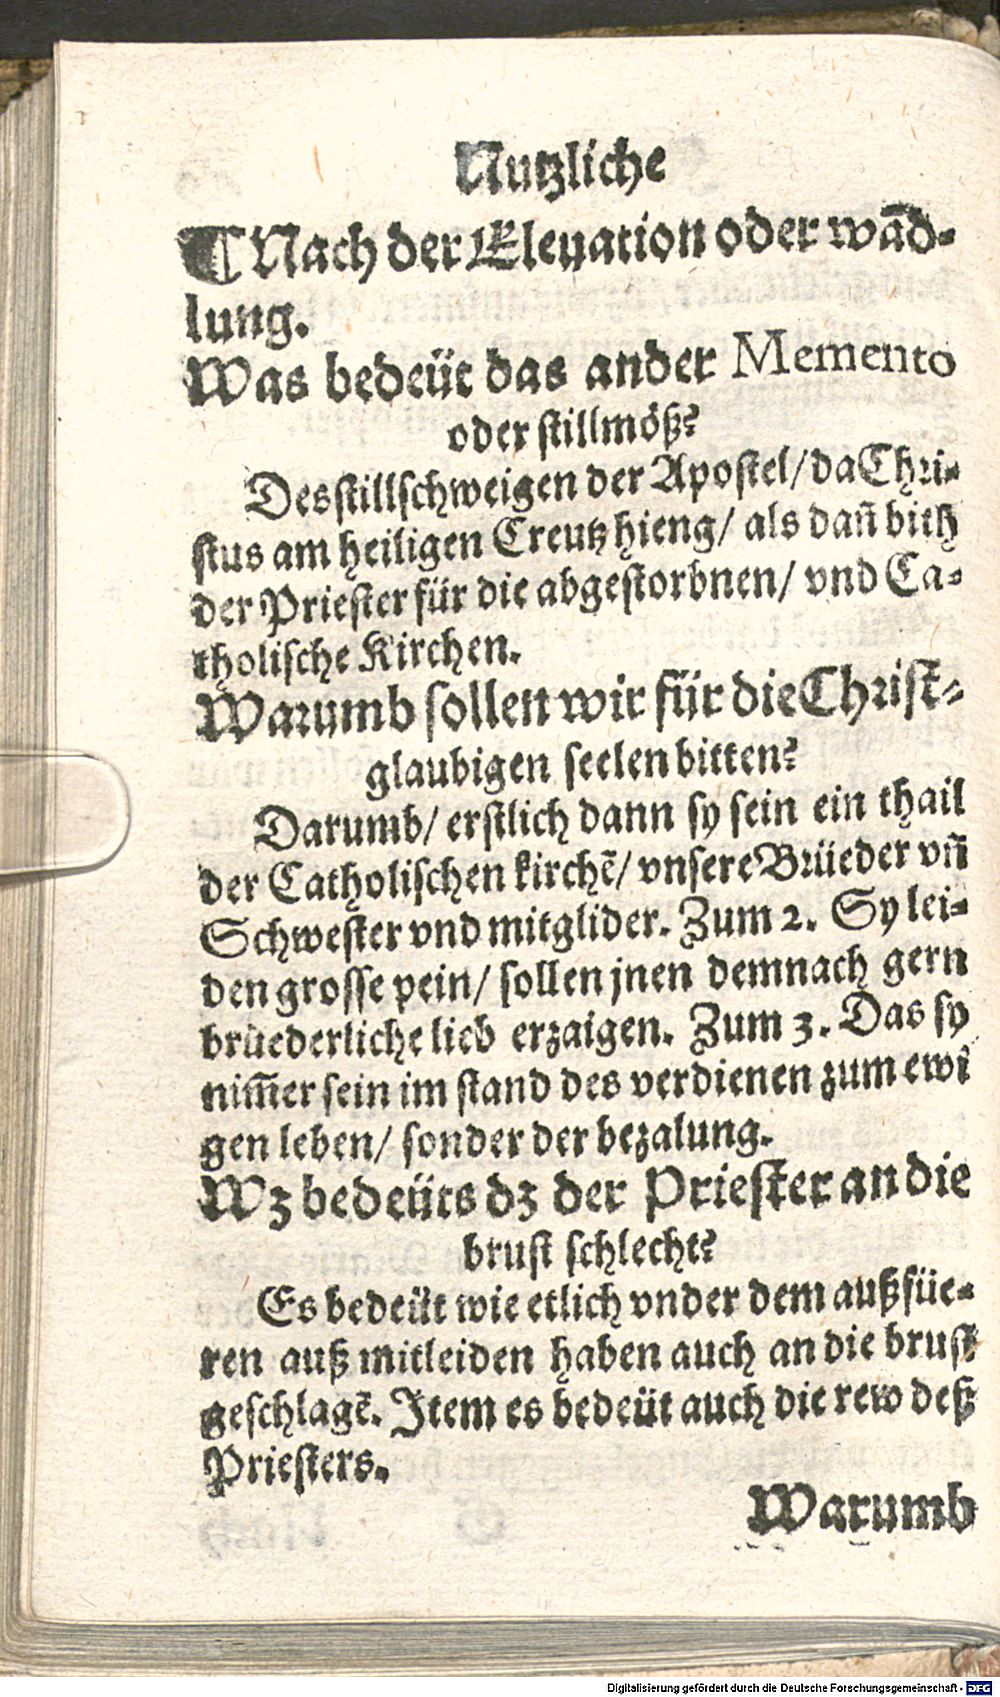 Nutzliche
¶ Nach der Eleuation oder wād-
lung.
Was bedeüt das ander Memento
oder stillmöß?
Des stillschweigen der Apostel/ da Chri-
stus am heiligen Creutz hieng/ als dañ bith
der Priester für die abgestorbnen/ vnd Ca-
tholische Kirchen.
Warumb sollen wir für die Christ-
glaubigen seelen bitten?
Darumb/ erstlich dann sy sein ein thail
der Catholischen kirchē/ vnsere Brüeder vñ
Schwester vnd mitglider. Zum 2. Sy lei-
den grosse pein/ sollen jnen demnach gern
brüederliche lieb erzaigen. Zum 3. Das sy
nim̄er sein im stand des verdienen zum ewi
gen leben/ sonder der bezalung.
Wz bedeüts dz der Priester an die
brust schlecht?
Es bedeüt wie etlich vnder dem außfüe-
ren auß mitleiden haben auch an die brust
geschlagē. Item es bedeüt auch die rew deß
Priesters.
Warumb
Digitalisierung gefördert durch die Deutsche Forschungsgemeinschaft - DFG